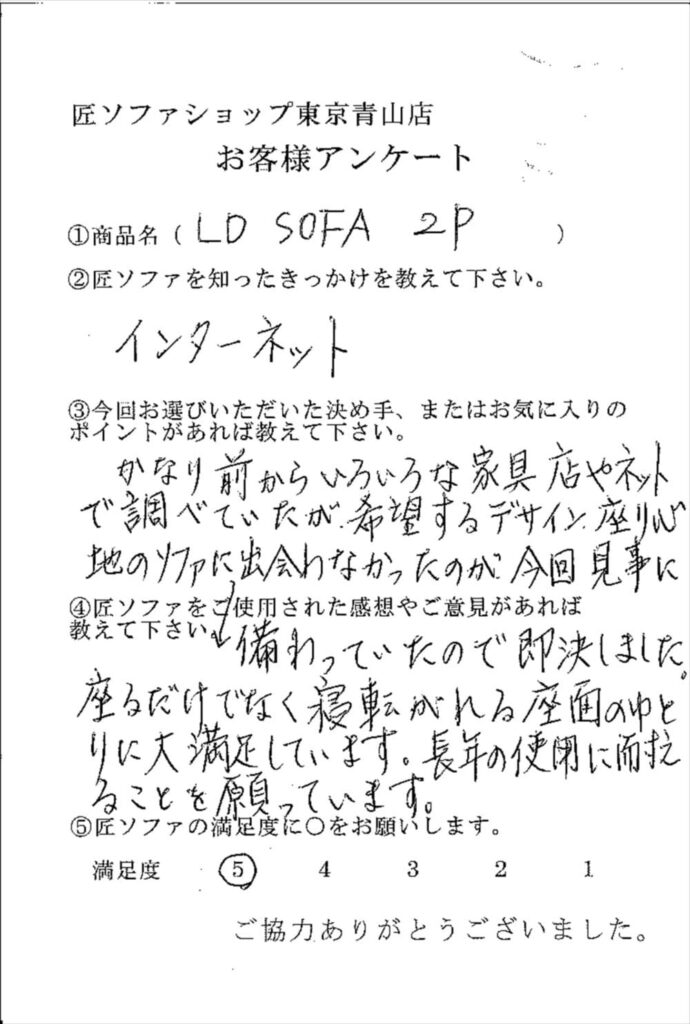 匠ソファショップ東京青山店
お客様アンケート
①商品名（ LD SOFA 2P ）
②匠ソファを知ったきっかけを教えて下さい。
インターネット
③今回お選びいただいた決め手、またはお気に入りの
ポイントがあれば教えて下さい。
かなり前からいろいろな家具店やネット
で調べていたが、希望するデザイン、座り心
地のソファに出会わなかったのが、今回見事に
④匠ソファをご使用された感想やご意見があれば
教えて下さい。
備わっていたので即決しました。
座るだけでなく寝転がれる座面のゆと
りに大満足しています。長年の使用に耐え
ることを願っています。
⑤匠ソファの満足度に〇をお願いします。
満足度 ⑤ 4 3 2 1
ご協力ありがとうございました。